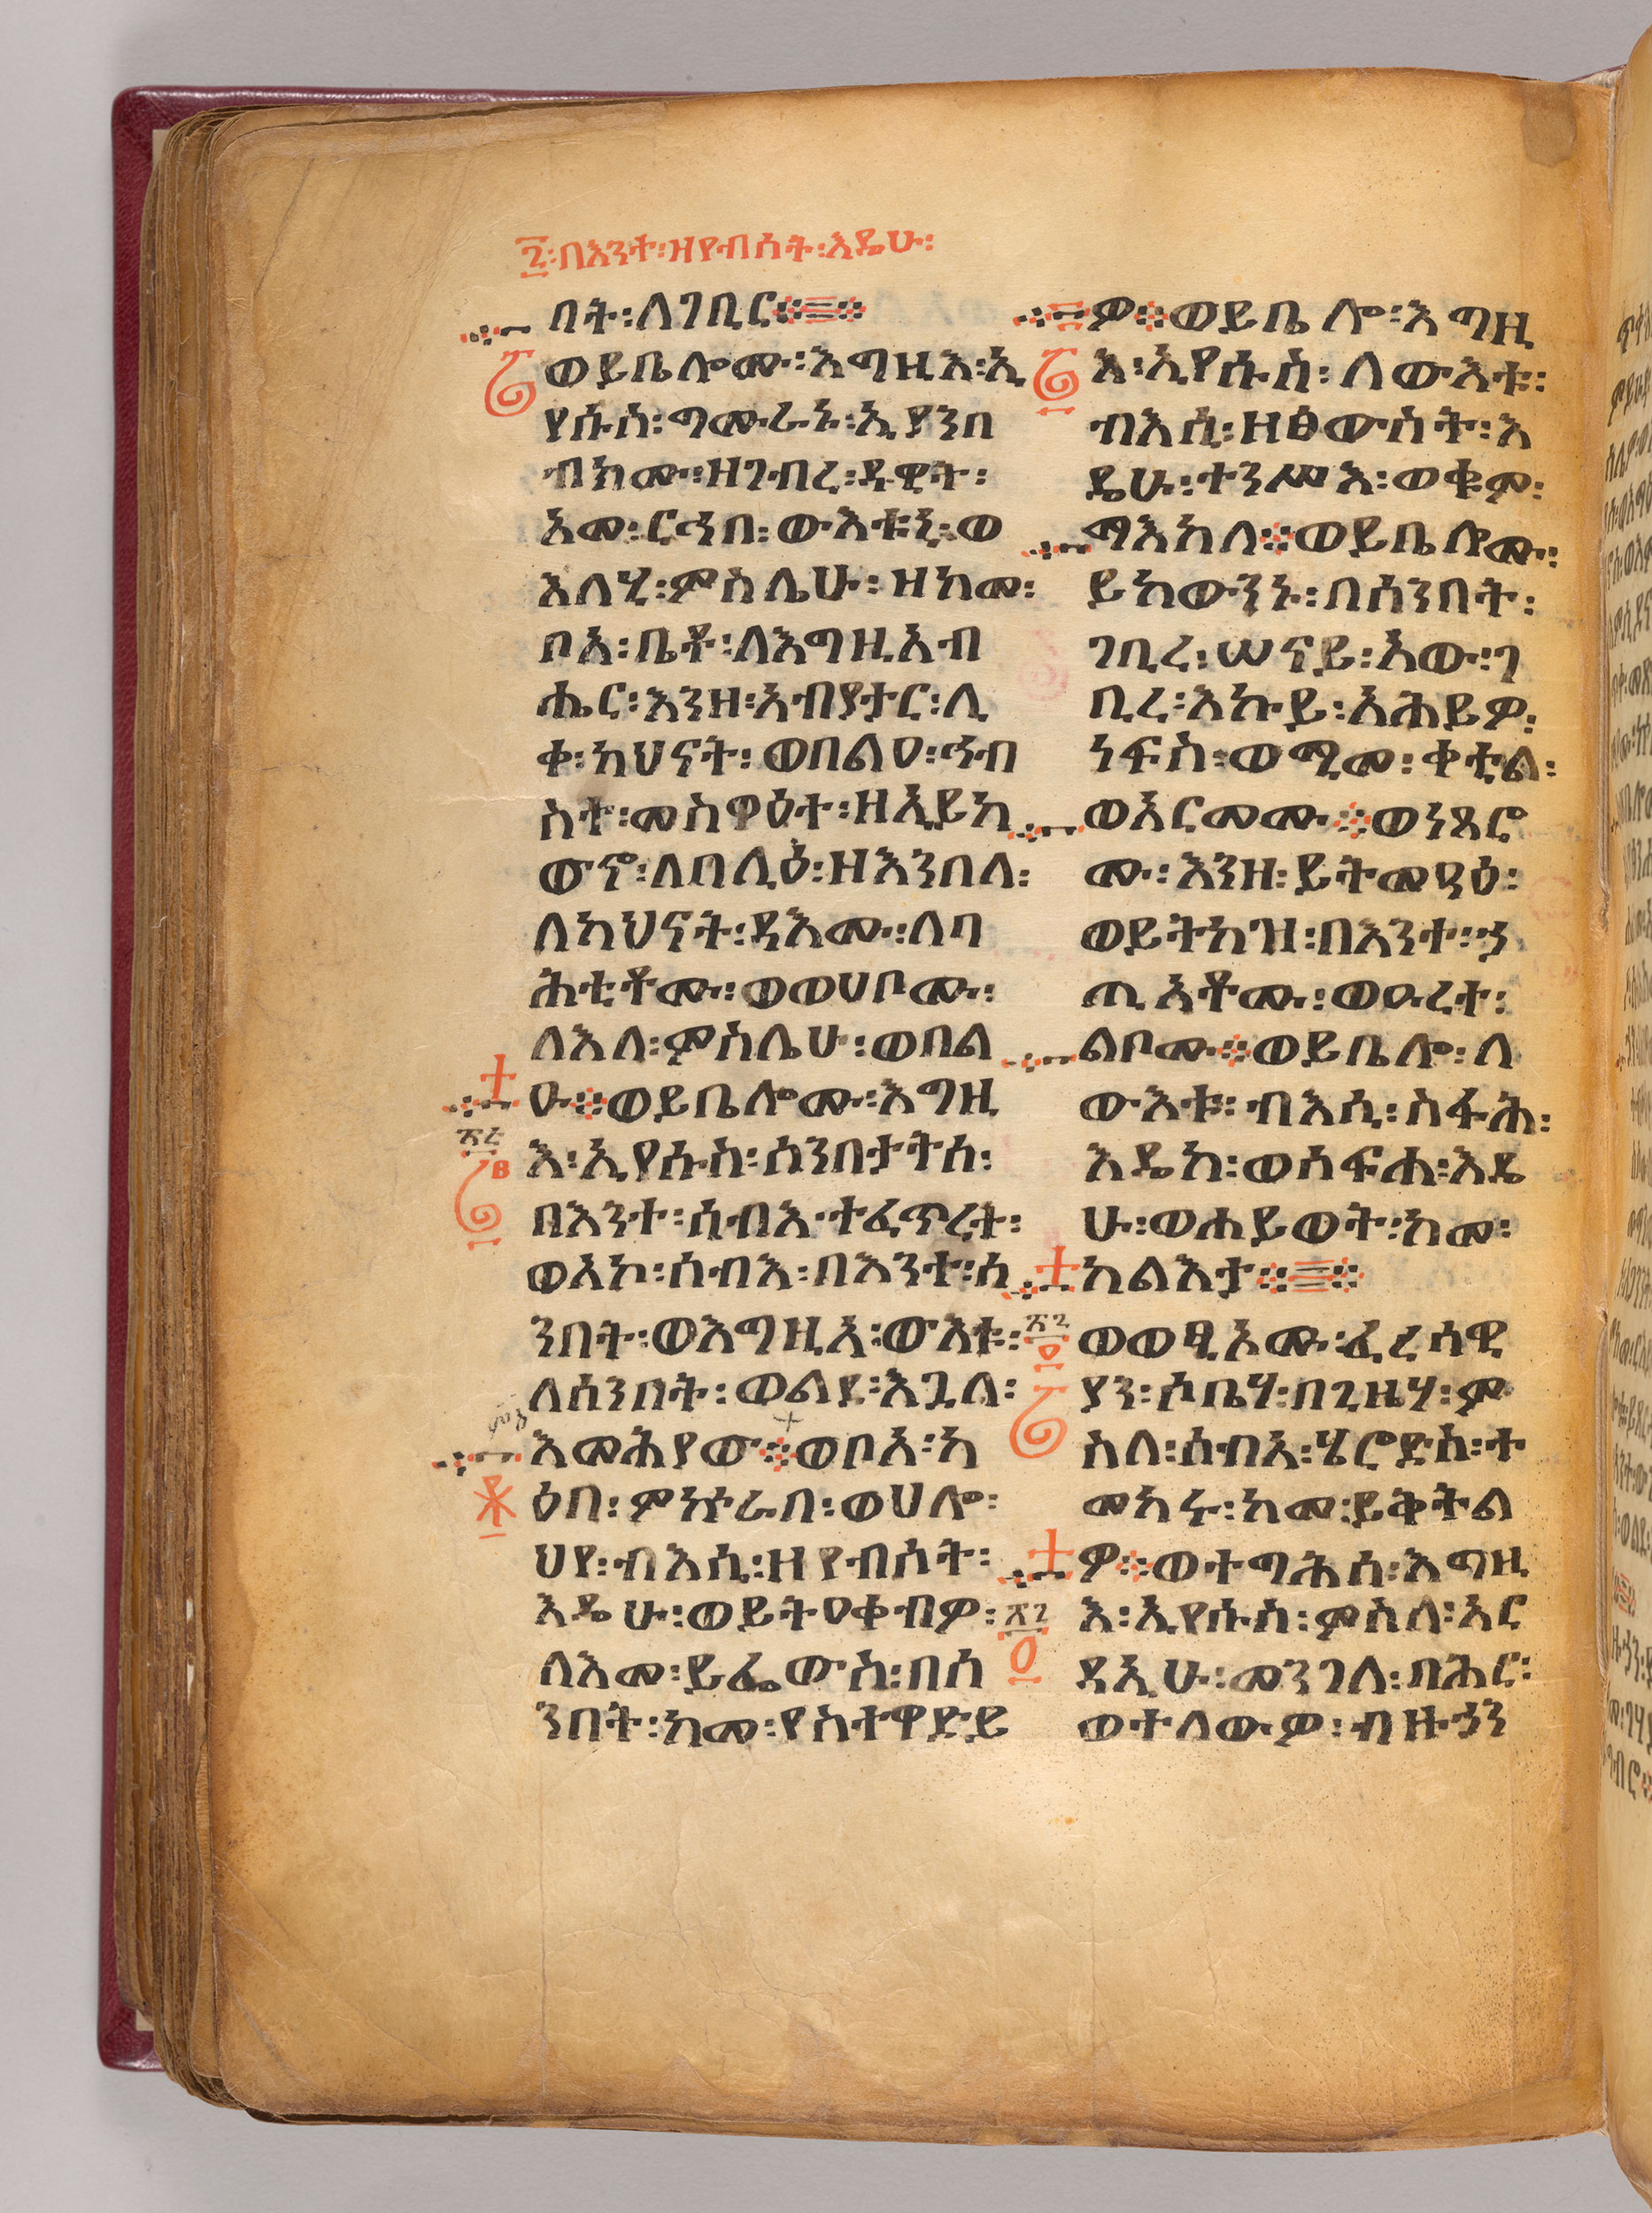 ፯፡በእንተ፡ዘየብሰት፡እዴሁ፡
በት፡ለገቢር፨
ወይቤሎሙ፡እግዚእ፡ኢ
የሱስ፡ግሙራኑ፡ኢያንበ
ብክሙ፡ዘገብረ፡ዳዊት፡
አመ፡ርኅበ፡ውእቱኒ፡ወ
እለሂ፡ምስሌሁ፡ዘከመ፡
ቦአ፡ቤቶ፡ለእግዚአብ
ሔር፡እንዘ፡አብያታር፡ሊ
ቀ፡ካህናት፡ወበልዐ፡ኅብ
ስተ፡መስዋዕተ፡ዘኢይከ
ውኖ፡ለበሊዕ፡ዘእንበለ፡
ለካህናት፡ዳእሙ፡ለባ
ሕቲቶሙ፡ወወሀቦሙ፡
ለእለ፡ምስሌሁ፡ወበል
ዑ፨ወይቤሎሙ፡እግዚ
እ፡ኢየሱስ፡ሰንበታትሰ፡
በእንተ፡ሰብእ፡ተፈጥረት፡
ወአኮ፡ሰብእ፡በእንተ፡ሰ
ንበት፡ወእግዚአ፡ውእቱ፡
ለሰንበት፡ወልደ፡እጓለ፡
እመሕያው፨ወቦአ፡ካ
ዕበ፡ምኵራበ፡ወሀሎ፡
ህየ፡ብእሲ፡ዘየብሰት፡
እዴሁ፡ወይትዐቀብዎ፡
ለእመ፡ይፌውስ፡በሰ
ንበት፡ከመ፡ያስተዋድይ
ዎ፨ወይቤሎ፡እግዚ
እ፡ኢየሱስ፡ለውእቱ፡
ብእሲ፡ዘፅውስት፡እ
ዴሁ፡ተንሥእ፡ወቁም፡
ማእከለ፨ወይቤሎሙ፡
ይከውንኑ፡በሰንበት፡
ገቢረ፡ሠናይ፡አው፡ገ
ቢረ፡እኩይ፡አሕይዎ፡
ነፍስ፡ወሚመ፡ቀቲል፡
ወአርመሙ፨ወነጸሮ
ሙ፡እንዘ፡ይትመዓዕ፡
ወይትከዝ፡በእንተ፡ኃ
ጢአቶሙ፡ወዑረት፡
ልቦሙ፨ወይቤሎ፡ለ
ውእቱ፡ብእሲ፡ስፋሕ፡
እዴከ፡ወሰፍሐ፡እዴ
ሁ፡ወሐይወት፡ከመ፡
ካልእታ፨
ወወፂኦሙ፡ፈሪሳዊ
ያን፡ሶቤሃ፡በጊዜሃ፡ም
ስለ፡ሰብአ፡ሄሮድስ፡ተ
መከሩ፡ከመ፡ይቅትል
ዎ፨ወተግሕሠ፡እግዚ
እ፡ኢየሱስ፡ምስለ፡አር
ዳኢሁ፡መንገለ፡ባሕር፡
ወተለውዎ፡ብዙኃን